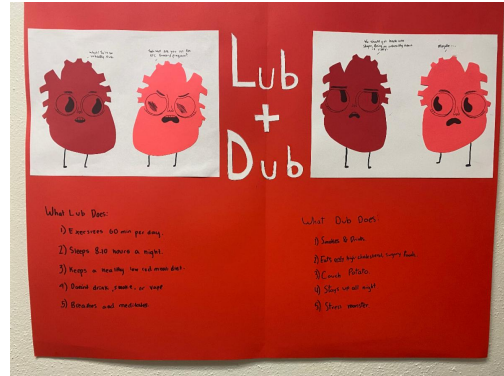 Lub
+
Dub
What Lub Does:
1) Exercises 60 min per day.
2) Sleeps 8-10 hours a night.
3) Keeps a healthy low red meat diet.
4) Doesnt drink, smoke, or vape
5) Breathes and meditates.
What Dub Does:
1) Smokes & Drinks
2) Eats only high cholesterol, sugary foods
3) Couch Potato
4) Stays up all night
5) Stress monster